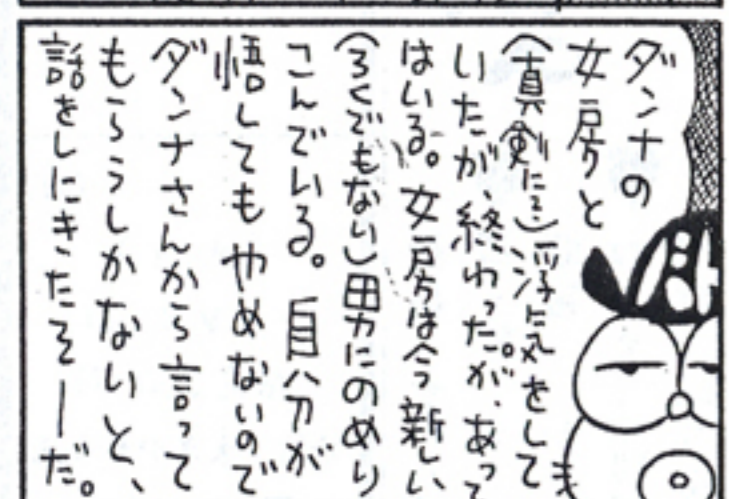 ダンナの
女房と
（真剣に？）浮気をして
いたが、終わった。が、あって
はいる。女房は今新しい
（ろくでもない）男にのめり
こんでいる。自分が
悟してもやめないので
ダンナさんから言って
もらうしかないと、
話をしにきたそーだ。